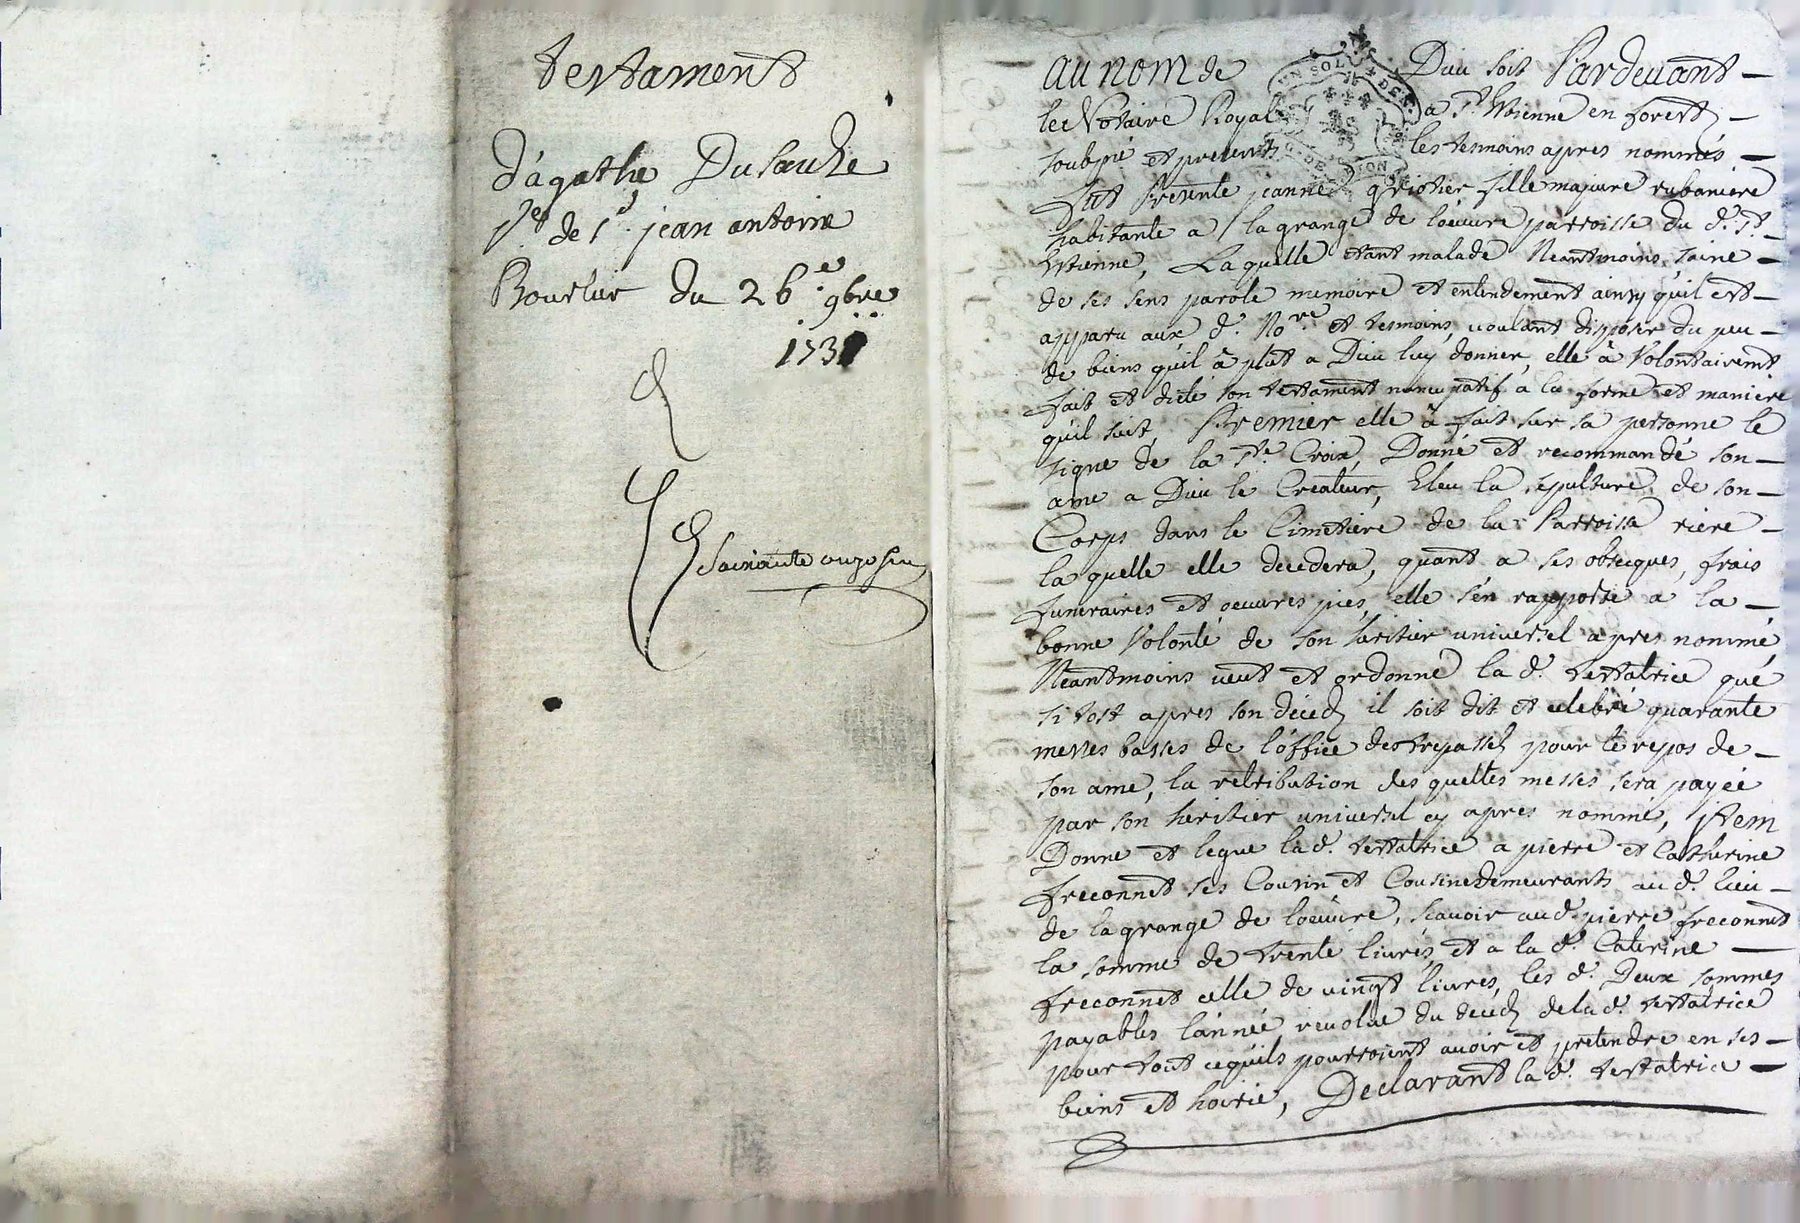 testament
d'agathe Dusauze
fe. de sr. jean antoine
Bourlier du 26e. 9bre
173
Soixante onze
au nom de Dieu soit Pardevant
le Notaire Royal a St. Etienne en forestz
soubsné et presents les tesmoins apres nommés
fut presente jeanne griotier fille majeure rubaniere
habitante a la grange de loeuvre parroisse du d. St.
Etienne, Laquelle etant malade Neantmoins saine
de ses sens parole memoire et entendement ainsy quil est
apparu aux d. Nore. et tesmoins, voulant disposer du peu
de biens quil â plût a Dieu luy donner, elle â Volontairemt
fait et dicté son testament nuncupatif â la forme et maniere
quil suit, Premier elle â fait sur sa personne le
signe de la Ste. Croix, Donné et recommandé son
ame a Dieu le Createur, Eleu la sepulture de son
Corps dans le Cimetiere de la Parroisse riere
la quelle elle decedera, quant a ses obseques, frais
funeraires et oeuvres pies, elle s'en rapporte a la
bonne Volonté de son heritier universel apres nommé,
Neantmoins veut et ordonne la d. testatrice que
si tost apres son décedz il soit dit et celebré quarante
messes basses de l'office des trepassez pour le repos de
son ame, la retribution des quelles messes sera payée
par son heritier universel cy apres nommé, Item
Donne et legue la d. testatrice a pierre et Catherine
freconnet ses Cousin et Cousine demeurants au d. lieu
de la grange de loeuvre, scavoir aud. pierre freconnet
la somme de trente livres, et a la d. Caterine
freconnet celle de vingt livres, les d. deux sommes
payables l'année revolue du decedz de la d. testatrice
pour tout cequils pourroient avoir et pretendre en ses
biens et hoirie, Declarant la d. testatrice